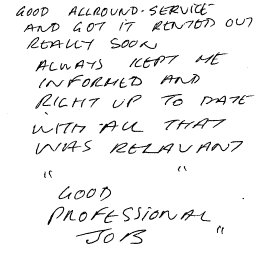 GOOD ALLROUND. SERVICE
AND GOT IT RENTED OUT
REALLY SOON
ALWAYS KEPT ME
INFORMED AND
RIGHT UP TO DATE
WITH ALL THAT
WAS RELAVANT
" "
GOOD
PROFESSIONAL
JOB "